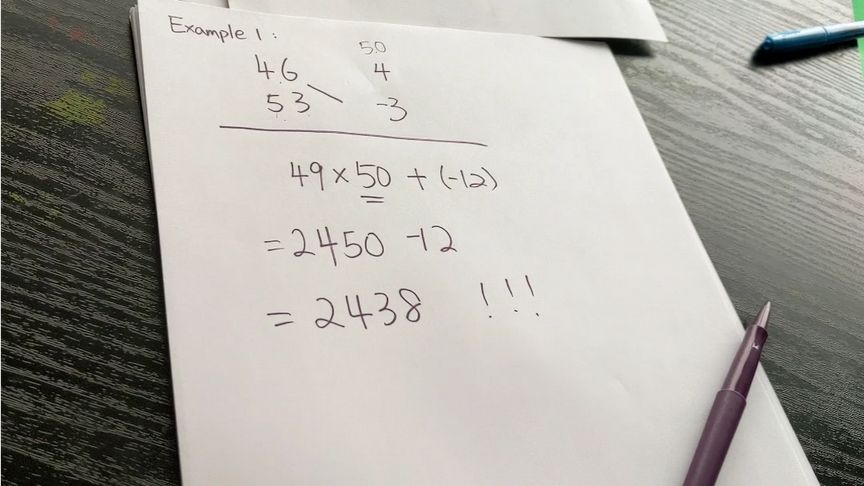 Example 1:
50
46 4
53 -3
49 × 50 + (-12)
= 2450 -12
= 2438 !!!